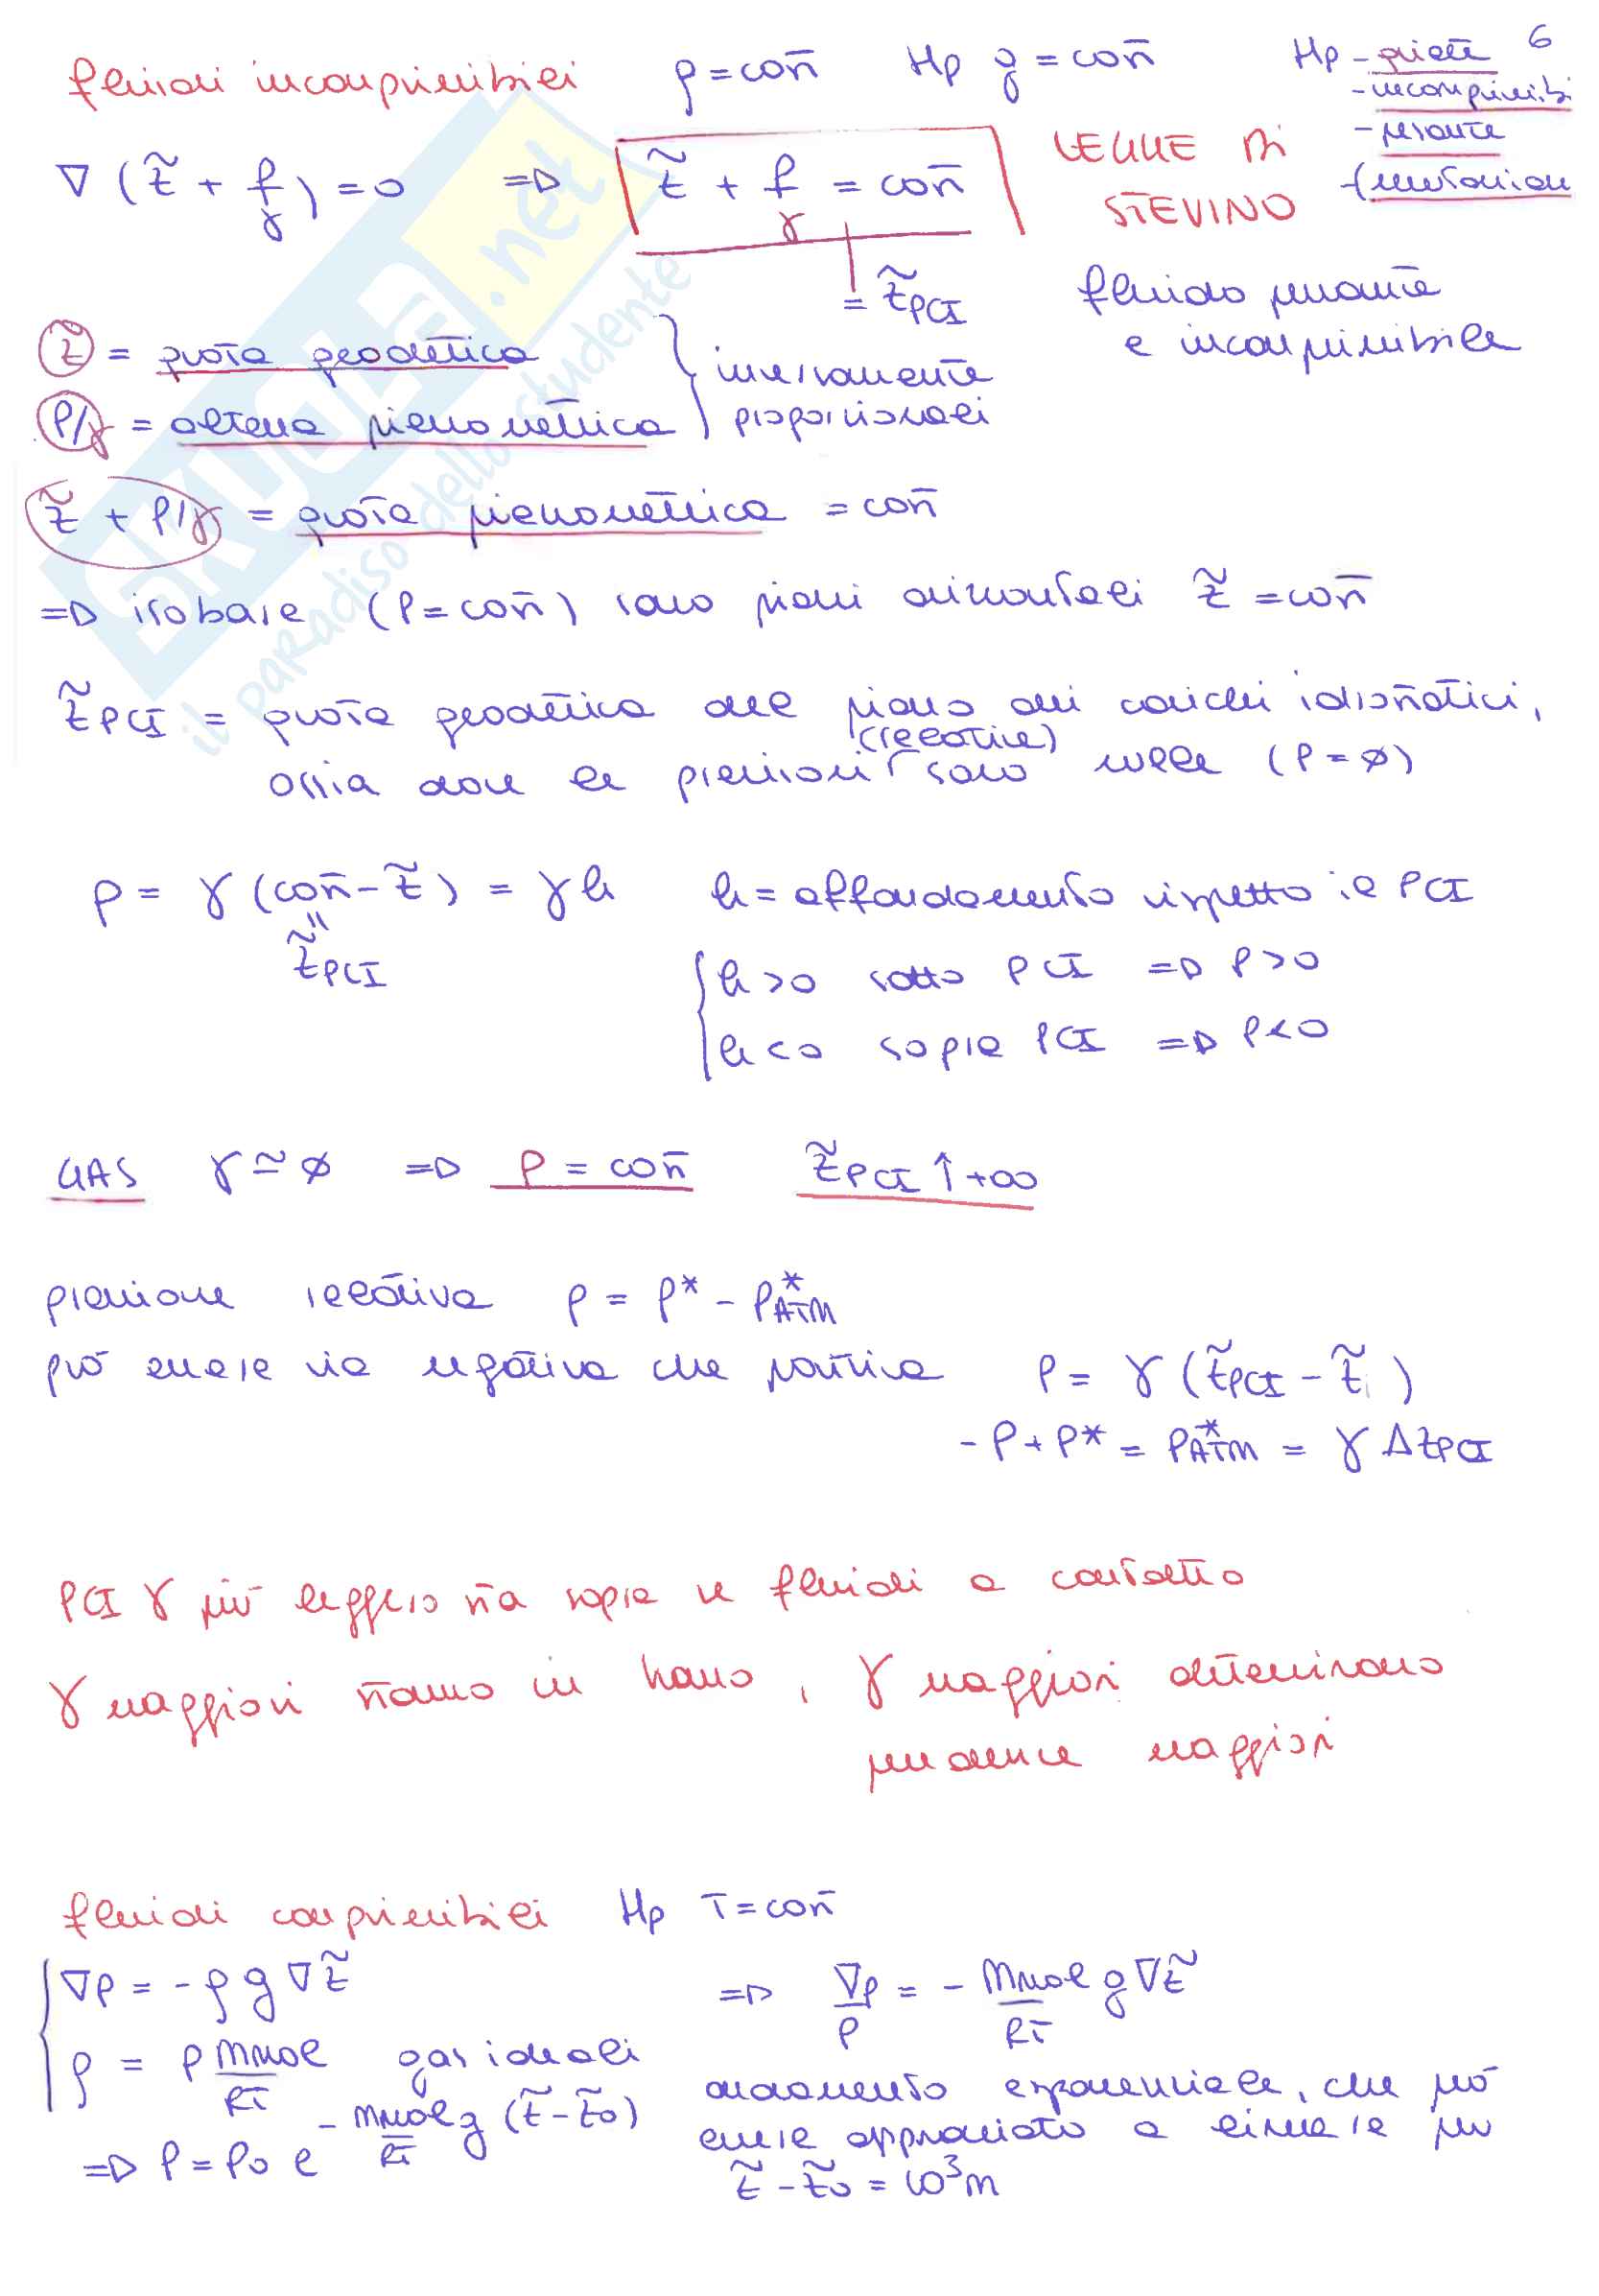 fluidi incomprimibili ρ = cost Hp g = cost Hp - quiete 6
- incomprimibi
- pesante
- (newtonian
∇ (z̃ + p/γ) = 0 => z̃ + p/γ = cost LEGGE DI STEVINO
= z̃PCI fluido pesante
e incomprimibile
z̃ = quota geodetica
P/γ = altezza piezometrica } inversamente proporzionali
z̃ + P/γ = quota piezometrica = cost
=> isobare (P = cost) sono piani orizzontali z̃ = cost
z̃PCI = quota geodetica del piano dei carichi idrostatici,
ossia dove le pressioni (relative) sono nulle (P = ∅)
p = γ (cost - z̃) = γh h = affondamento rispetto il PCI
z̃PCI
{ h > 0 sotto PCI => P > 0
h < 0 sopra PCI => P < 0
GAS γ ≃ ∅ => P = cost z̃PCI ↑ +∞
pressione relativa p = p* - p*ATM
può essere sia negativa che positiva P = γ (z̃PCI - z̃)
- P + P* = P*ATM = γ ΔzPCI
PCI γ più leggero sta sopra se fluidi a contatto
γ maggiori stanno in basso, γ maggiori determinano
pendenze maggiori
fluidi comprimibili Hp T = cost
{ ∇p = - ρ g ∇z̃ => ∇p/P = - Mmol/RT g ∇z̃
ρ = p Mmol/RT gas ideali
andamento esponenziale, che può
=> P = P0 e^(- Mmol g/RT (z̃ - z̃0)) essere approssiato a lineare per
z̃ - z̃0 = 10³m
SKUOLA.net
il paradiso dello studente